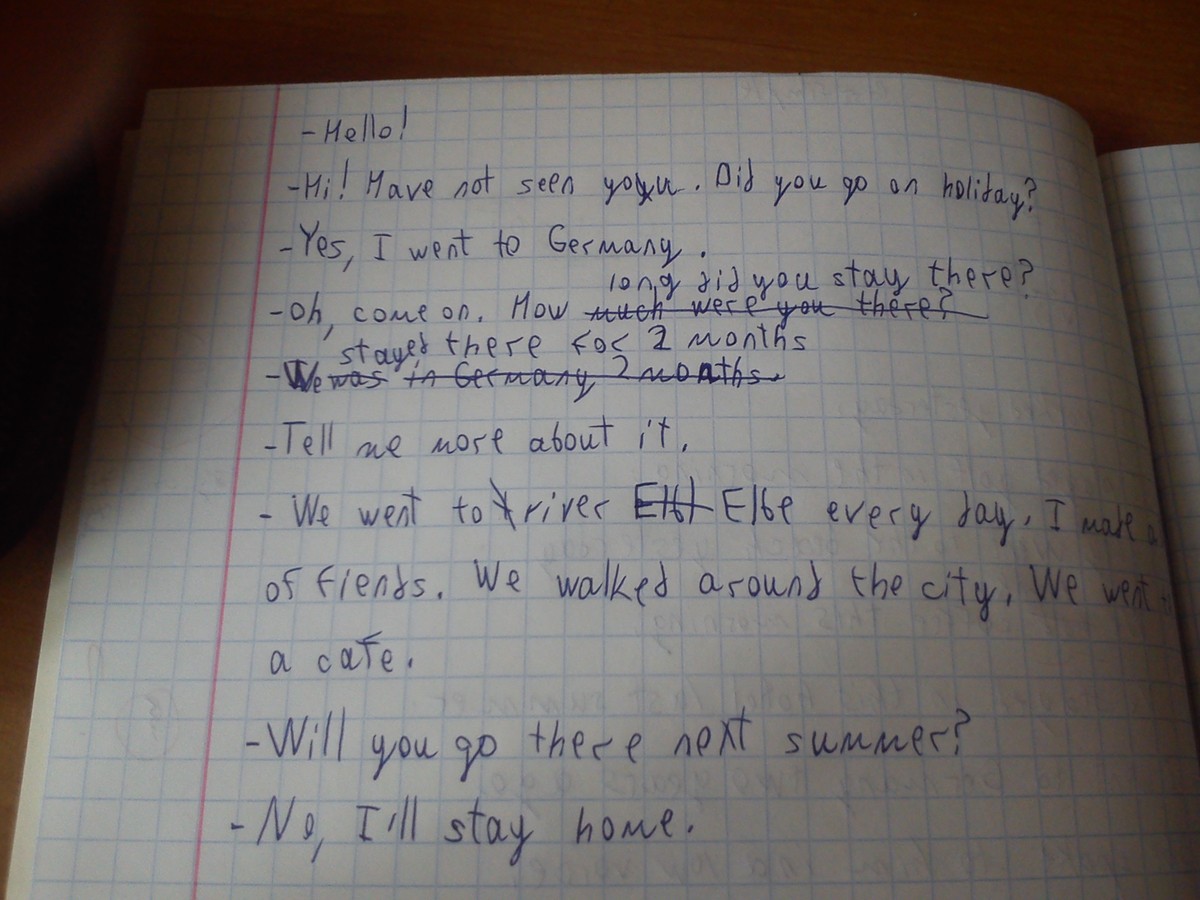 -Hello!
-Hi! Have not seen you. Did you go on holiday?
-Yes, I went to Germany.
long did you stay there?
-Oh, come on. How much were you there?
stayed there for 2 months
-We was in Germany 2 months.
-Tell me more about it.
- We went to river Elbe every day. I made a
of fiends. We walked around the city. We went
a cafe.
-Will you go there next summer?
-No, I'll stay home.